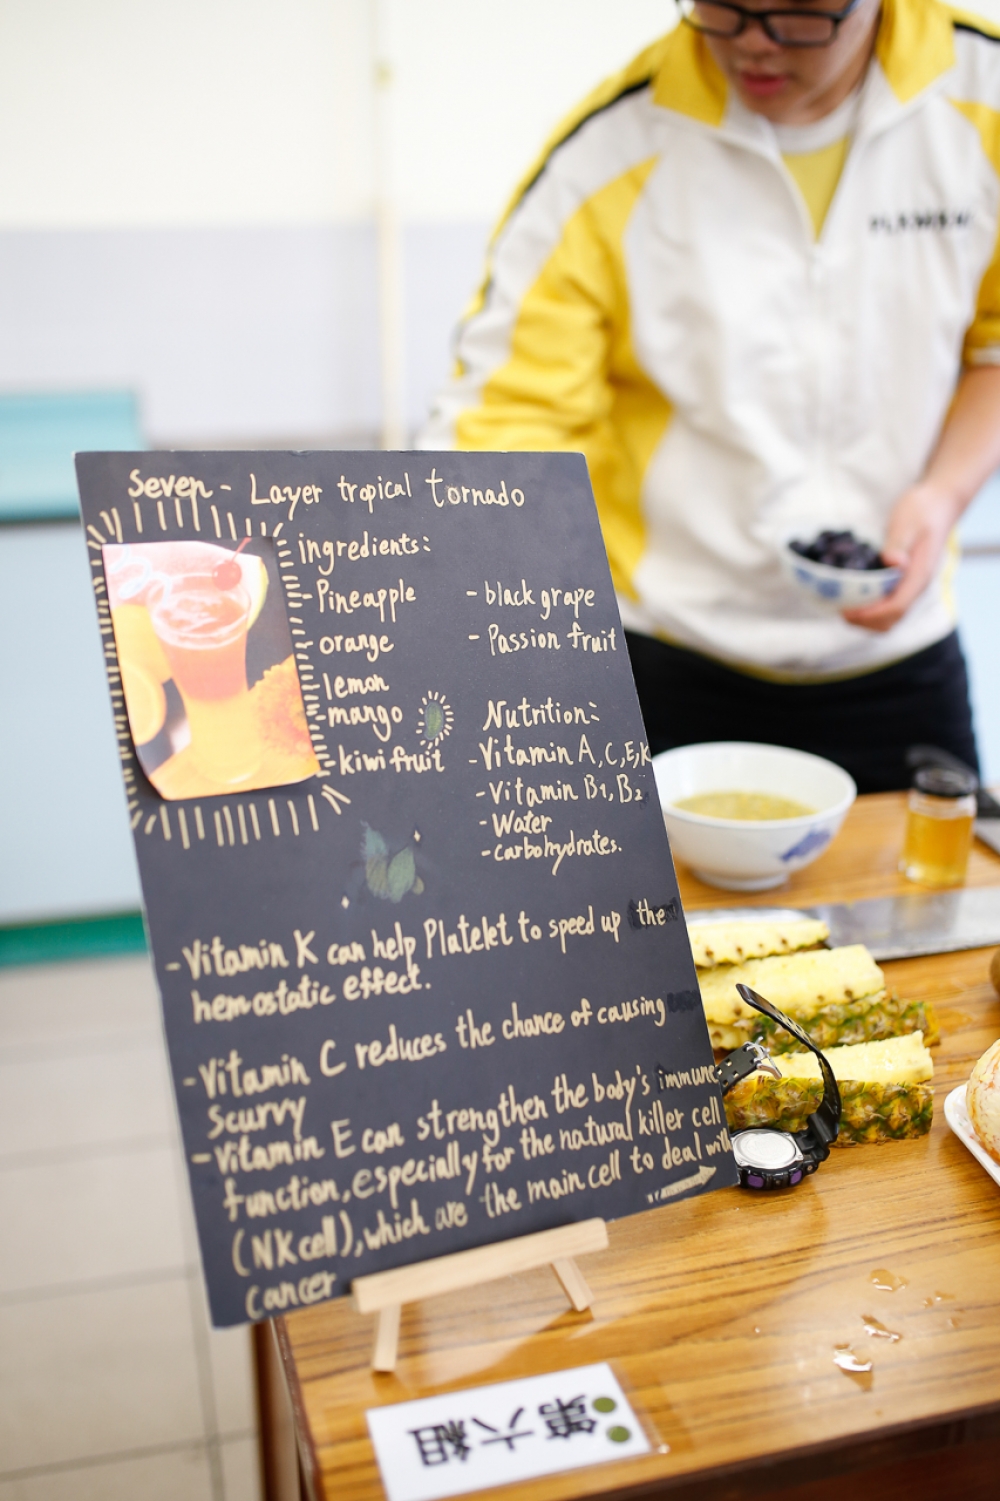 Seven - Layer tropical tornado
ingredients:
- Pineapple
orange
lemon
- mango
- kiwi fruit
- black grape
- Passion fruit
Nutrition:
- Vitamin A, C, E, K
- Vitamin B1, B2
- Water
- carbohydrates.
- Vitamin K can help Platelet to speed up the
hemostatic effect.
- Vitamin C reduces the chance of causing
scurvy
- Vitamin E can strengthen the body's immune
function, especially for the natural killer cell
(NK cell), which are the main cell to deal with
cancer
第六組